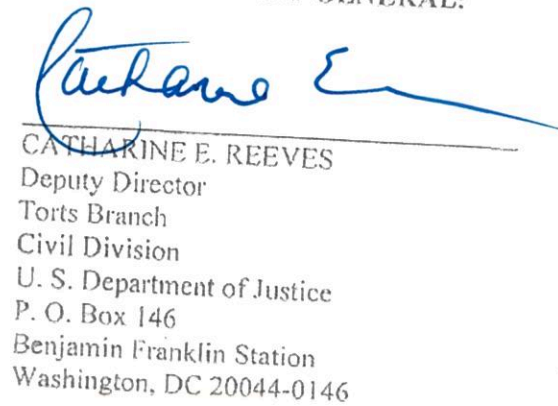 GENERAL:
Catharine E
CATHARINE E. REEVES
Deputy Director
Torts Branch
Civil Division
U. S. Department of Justice
P. O. Box 146
Benjamin Franklin Station
Washington, DC 20044-0146